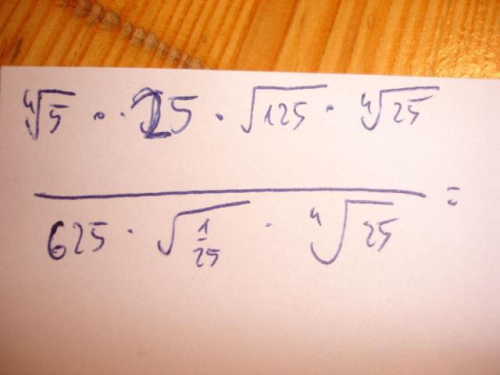 ⁴√5 · 25 · √125 · ⁴√25
625 · √(1/25) · ⁴√25 =